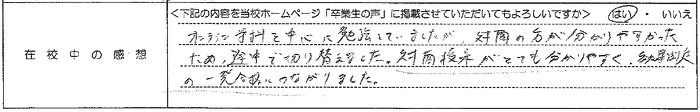 <下記の内容を当校ホームページ「卒業生の声」に掲載させていただいてもよろしいですか> はい ・ いいえ
在校中の感想
オンライン学科を中心に勉強していましたが、対面の方が分かりやすかった
ため、途中で切り替えました。対面授業がとても分かりやすく、効果測定
の一発合格につながりました。